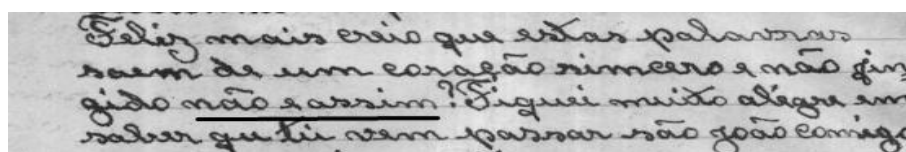 Feliz mais creio que estas palavras
saem de um coração simcero e não fin
gido não e assim? Fiquei muito alégre em
saber qu tú vem passar são joão comigo